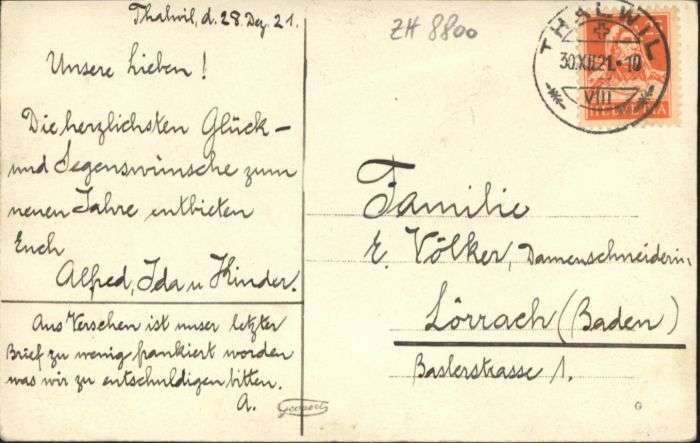 Thalwil, d. 28. Dez. 21.
Unsere Lieben!
Die herzlichsten Glück-
und Segenswünsche zum
neuen Jahre entbieten
Euch
Alfred, Ida u Kinder.
Aus Versehen ist unser letzter
Brief zu wenig frankiert worden
was wir zu entschuldigen bitten.
A.
ZH 8800
THALWIL
30.XII.21.-10
VIII
HELVETIA
Familie
E. Völker, Damenschneiderin,
Lörrach (Baden)
Baslerstrasse 1.